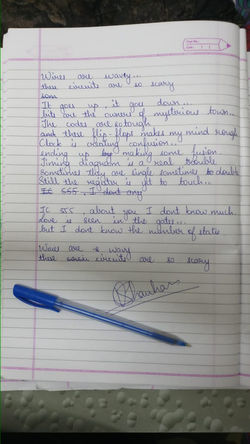 Wires are wavy...
these circuits are so scary
It goes up, it goes down...
bits are the owner of mysterious town...
The codes are so tough
and these flip-flops makes my mind rough
Clock is creating confusion...
ending up by making some fusion
Timing diagram is a real trouble
Sometimes they are single sometimes to double
Still the register is yet to touch...
IC 555, I dont any
IC 555, about you I dont know much
Love is seen in the gates...
but I dont know the number of states
Wires are wavy
these circuits are so scary
Chauhan